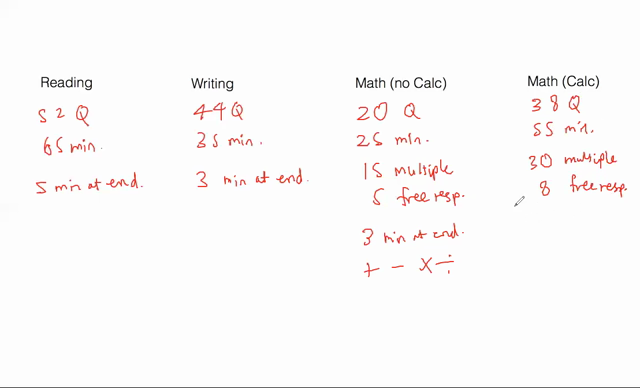 Reading
52 Q
65 min.
5 min at end.
Writing
44 Q
35 min.
3 min at end.
Math (no Calc)
20 Q
25 min.
15 multiple
5 free resp.
3 min at end.
+ - x ÷
Math (Calc)
38 Q
55 min.
30 multiple
8 free resp.